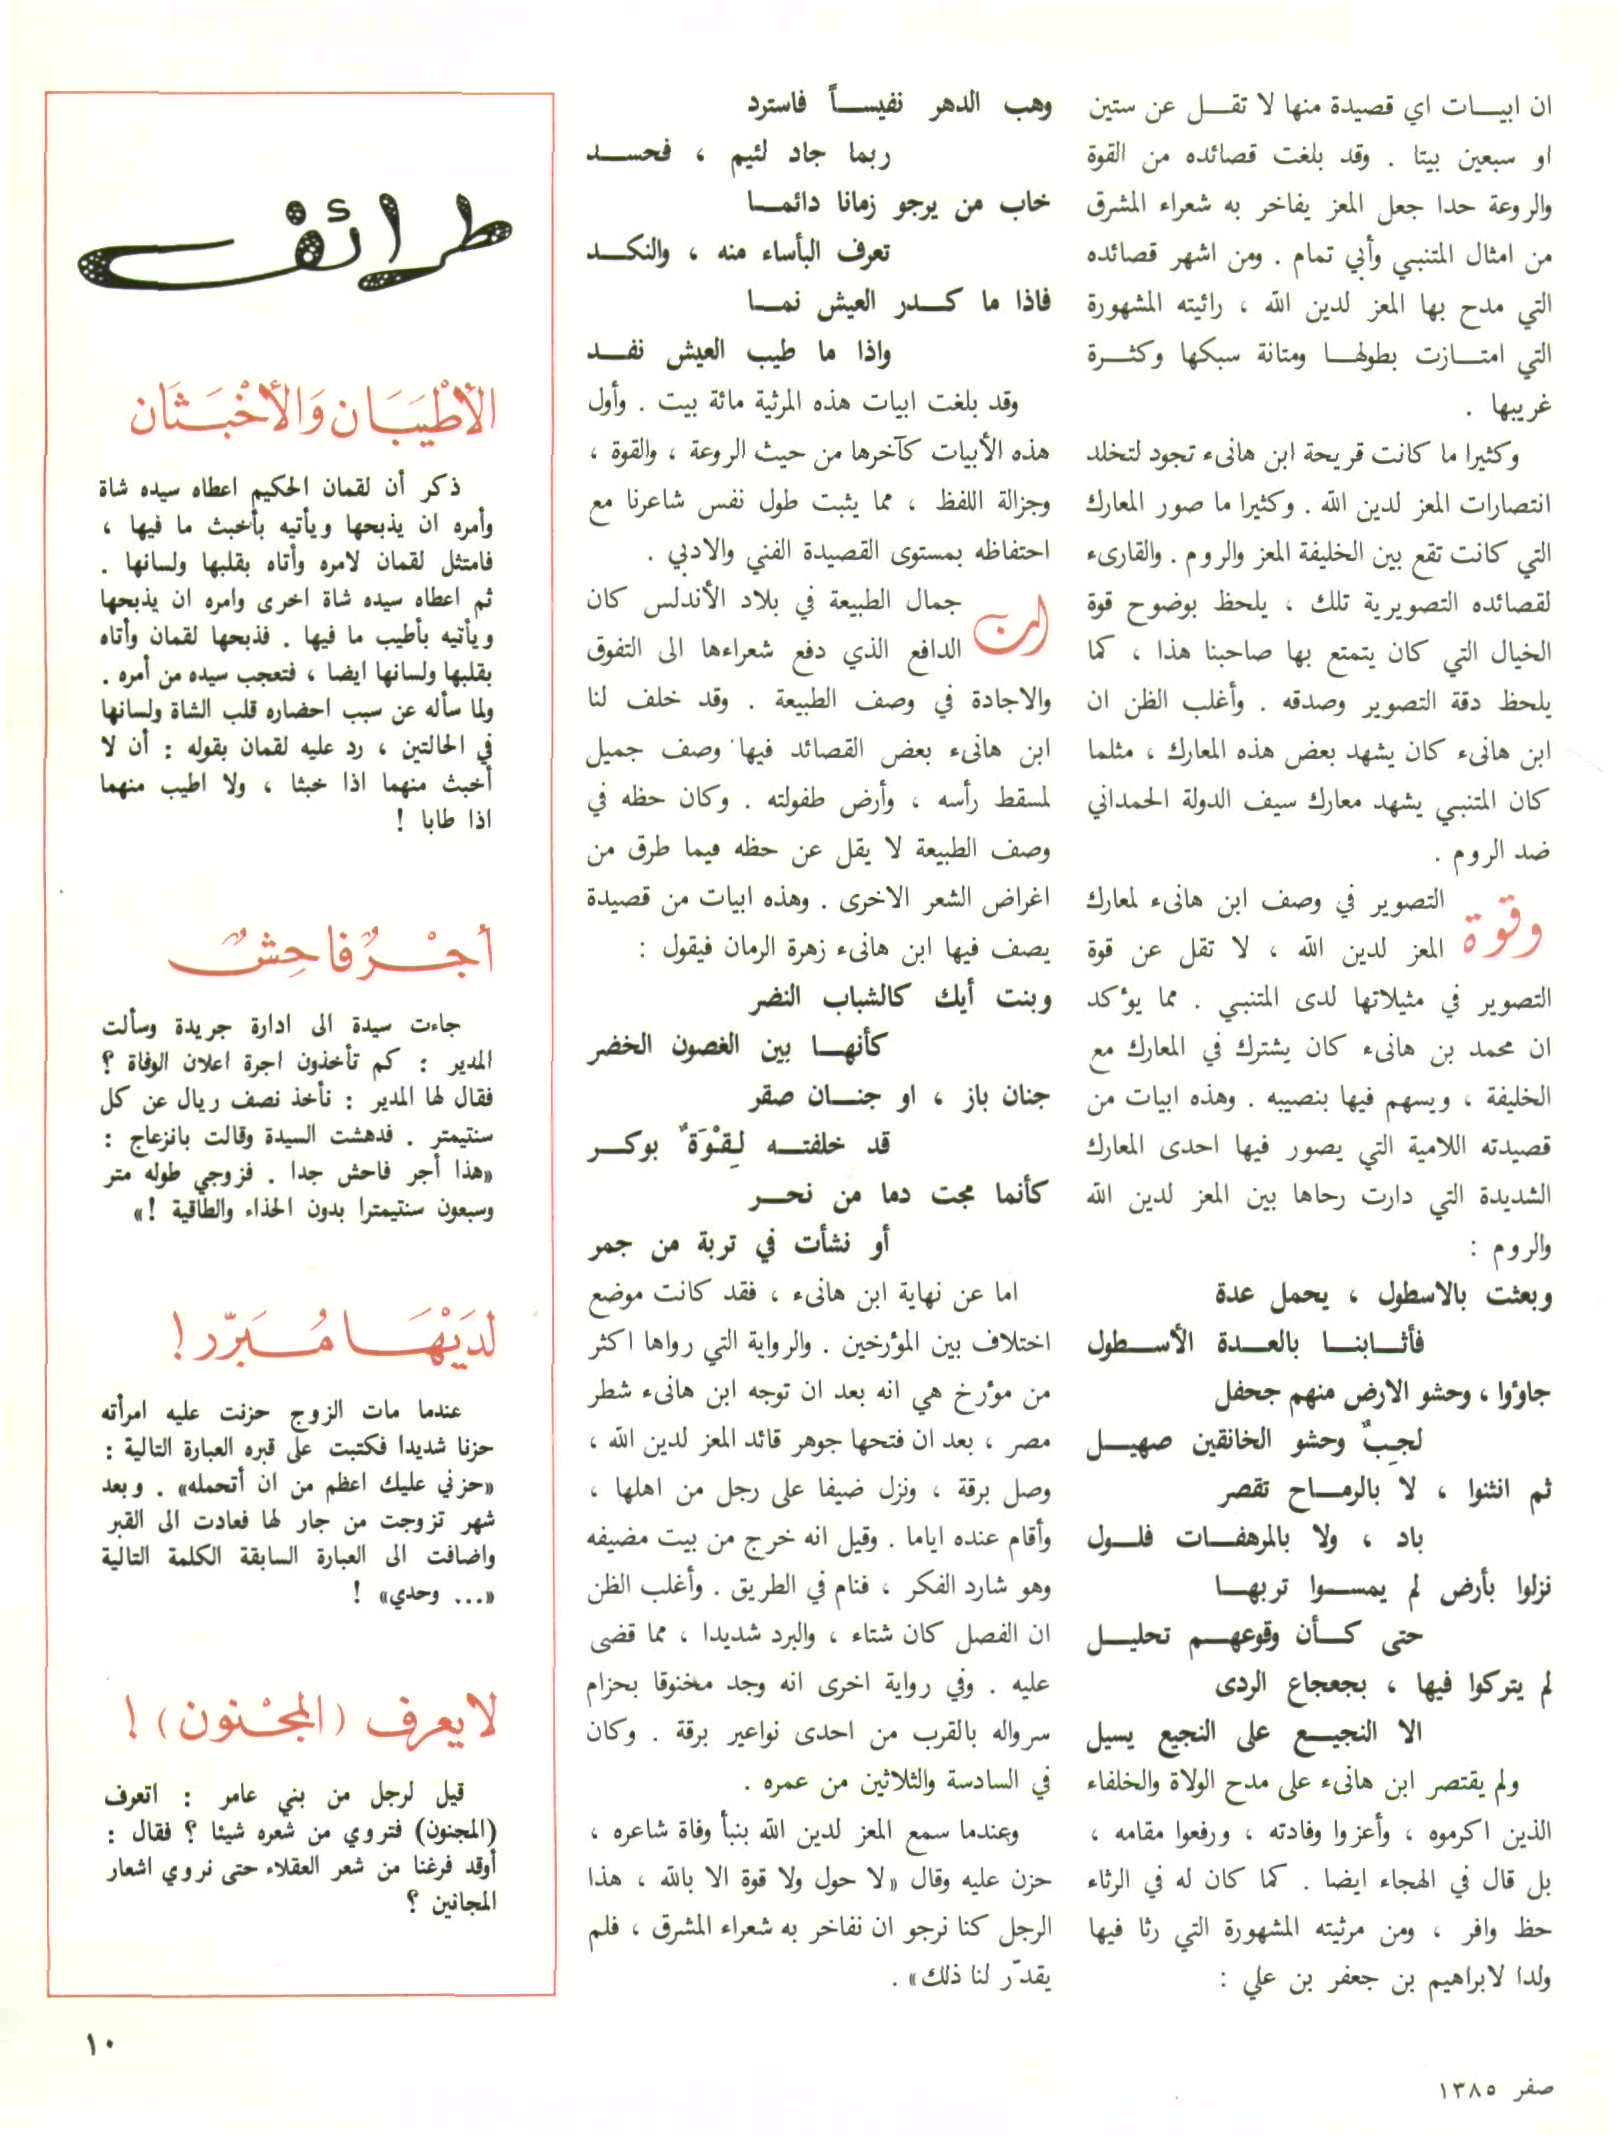 ان ابيات اي قصيدة منها لا تقل عن ستين
او سبعين بيتا . وقد بلغت قصائده من القوة
والروعة حدا جعل المعز يفاخر به شعراء المشرق
من امثال المتنبي وأبي تمام . ومن اشهر قصائده
التي مدح بها المعز لدين الله ، رائيته المشهورة
التي امتازت بطولها ومتانة سبكها وكثرة
غريبها .
وكثيرا ما كانت قريحة ابن هانىء تجود لتخلد
انتصارات المعز لدين الله . وكثيرا ما صور المعارك
التي كانت تقع بين الخليفة المعز والروم . والقارىء
لقصائده التصويرية تلك ، يلحظ بوضوح قوة
الخيال التي كان يتمتع بها صاحبنا هذا ، كما
يلحظ دقة التصوير وصدقه . وأغلب الظن ان
ابن هانىء كان يشهد بعض هذه المعارك ، مثلما
كان المتنبي يشهد معارك سيف الدولة الحمداني
ضد الروم .
وقوة التصوير في وصف ابن هانىء لمعارك
المعز لدين الله ، لا تقل عن قوة
التصوير في مثيلاتها لدى المتنبي . مما يؤكد
ان محمد بن هانىء كان يشترك في المعارك مع
الخليفة ، ويسهم فيها بنصيبه . وهذه ابيات من
قصيدته اللامية التي يصور فيها احدى المعارك
الشديدة التي دارت رحاها بين المعز لدين الله
والروم :
وبعثت بالاسطول ، يحمل عدة
فأثابنا بالعدة الأسطول
جاوؤا ، وحشو الارض منهم جحفل
لجِبٌ وحشو الخانقين صهيل
ثم انثنوا ، لا بالرماح تقصر
باد ، ولا بالمرهفات فلول
نزلوا بأرض لم يمسوا تربها
حتى كأن وقوعهم تحليل
لم يتركوا فيها ، بجعجاع الردى
الا النجيع على النجيع يسيل
ولم يقتصر ابن هانىء على مدح الولاة والخلفاء
الذين اكرموه ، وأعزوا وفادته ، ورفعوا مقامه ،
بل قال في الهجاء ايضا . كما كان له في الرثاء
حظ وافر ، ومن مرثيته المشهورة التي رثا فيها
ولدا لابراهيم بن جعفر بن علي :
وهب الدهر نفيساً فاسترد
ربما جاد لئيم ، فحسد
خاب من يرجو زمانا دائما
تعرف البأساء منه ، والنكد
فاذا ما كدر العيش نما
واذا ما طيب العيش نفد
وقد بلغت ابيات هذه المرثية مائة بيت . وأول
هذه الأبيات كآخرها من حيث الروعة ، والقوة ،
وجزالة اللفظ ، مما يثبت طول نفس شاعرنا مع
احتفاظه بمستوى القصيدة الفني والادبي .
ان جمال الطبيعة في بلاد الأندلس كان
الدافع الذي دفع شعراءها الى التفوق
والاجادة في وصف الطبيعة . وقد خلف لنا
ابن هانىء بعض القصائد فيها وصف جميل
لمسقط رأسه ، وأرض طفولته . وكان حظه في
وصف الطبيعة لا يقل عن حظه فيما طرق من
اغراض الشعر الاخرى . وهذه ابيات من قصيدة
يصف فيها ابن هانىء زهرة الرمان فيقول :
وبنت أيك كالشباب النضر
كأنها بين الغصون الخضر
جنان باز ، او جنان صقر
قد خلفته لِقْوَةٌ بوكر
كأنما مجت دما من نحر
أو نشأت في تربة من جمر
اما عن نهاية ابن هانىء ، فقد كانت موضع
اختلاف بين المؤرخين . والرواية التي رواها اكثر
من مؤرخ هي انه بعد ان توجه ابن هانىء شطر
مصر ، بعد ان فتحها جوهر قائد المعز لدين الله ،
وصل برقة ، ونزل ضيفا على رجل من اهلها ،
وأقام عنده اياما . وقيل انه خرج من بيت مضيفه
وهو شارد الفكر ، فنام في الطريق . وأغلب الظن
ان الفصل كان شتاء ، والبرد شديدا ، مما قضى
عليه . وفي رواية اخرى انه وجد مخنوقا بحزام
سرواله بالقرب من احدى نواعير برقة . وكان
في السادسة والثلاثين من عمره .
وعندما سمع المعز لدين الله بنبأ وفاة شاعره ،
حزن عليه وقال «لا حول ولا قوة الا بالله ، هذا
الرجل كنا نرجو ان نفاخر به شعراء المشرق ، فلم
يقدّر لنا ذلك» .
طرائف
الأَطْيَبَان وَالأَخْبَثَان
ذكر أن لقمان الحكيم اعطاه سيده شاة
وأمره ان يذبحها ويأتيه بأخبث ما فيها ،
فامتثل لقمان لامره وأتاه بقلبها ولسانها .
ثم اعطاه سيده شاة اخرى وامره ان يذبحها
ويأتيه بأطيب ما فيها . فذبحها لقمان وأتاه
بقلبها ولسانها ايضا ، فتعجب سيده من أمره .
ولما سأله عن سبب احضاره قلب الشاة ولسانها
في الحالتين ، رد عليه لقمان بقوله : أن لا
أخبث منهما اذا خبثا ، ولا اطيب منهما
اذا طابا !
أجْرٌ فاحِشٌ
جاءت سيدة الى ادارة جريدة وسألت
المدير : كم تأخذون اجرة اعلان الوفاة ؟
فقال لها المدير : نأخذ نصف ريال عن كل
سنتيمتر . فدهشت السيدة وقالت بانزعاج :
«هذا أجر فاحش جدا . فزوجي طوله متر
وسبعون سنتيمترا بدون الحذاء والطاقية !»
لدَيْهَا مُبَرّر !
عندما مات الزوج حزنت عليه امرأته
حزنا شديدا فكتبت على قبره العبارة التالية :
«حزني عليك اعظم من ان أتحمله» . وبعد
شهر تزوجت من جار لها فعادت الى القبر
واضافت الى العبارة السابقة الكلمة التالية
«... وحدي» !
لا يعرف (المجْنون) !
قيل لرجل من بني عامر : اتعرف
(المجنون) فتروي من شعره شيئا ؟ فقال :
أوقد فرغنا من شعر العقلاء حتى نروي اشعار
المجانين ؟
١٠
صفر ١٣٨٥